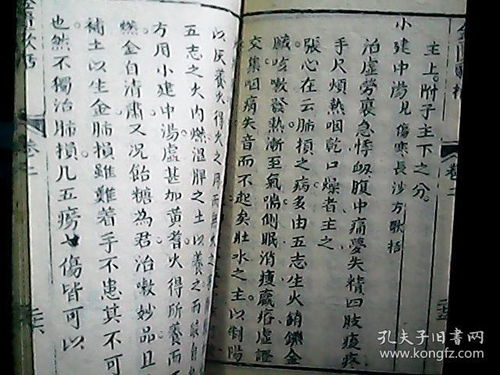 主上。附子主下之分。
小建中湯 見傷寒長沙方歌括
治虛勞裏急悸衄腹中痛夢失精四肢痠疼
手足煩熱咽乾口燥者主之
張心在云肺損之病多由五志生火銷鑠金
臟咳嗽發熱漸至氣喘側眠消瘦羸瘠虛證
交集咽痛失音而不起矣壯水之主以制陽
卷二
以灰養火得火之用而
五志之火內燃溫脾之土以養之而
方用小建中湯虛甚加黃耆火得所養而
燃金自清肅又況飴糖為君治嗽妙品且
補土以生金肺損雖難着手不患其不可
也然不獨治肺損凡五癆七傷皆可以
卷二
孔夫子旧书网
www.kongfz.com